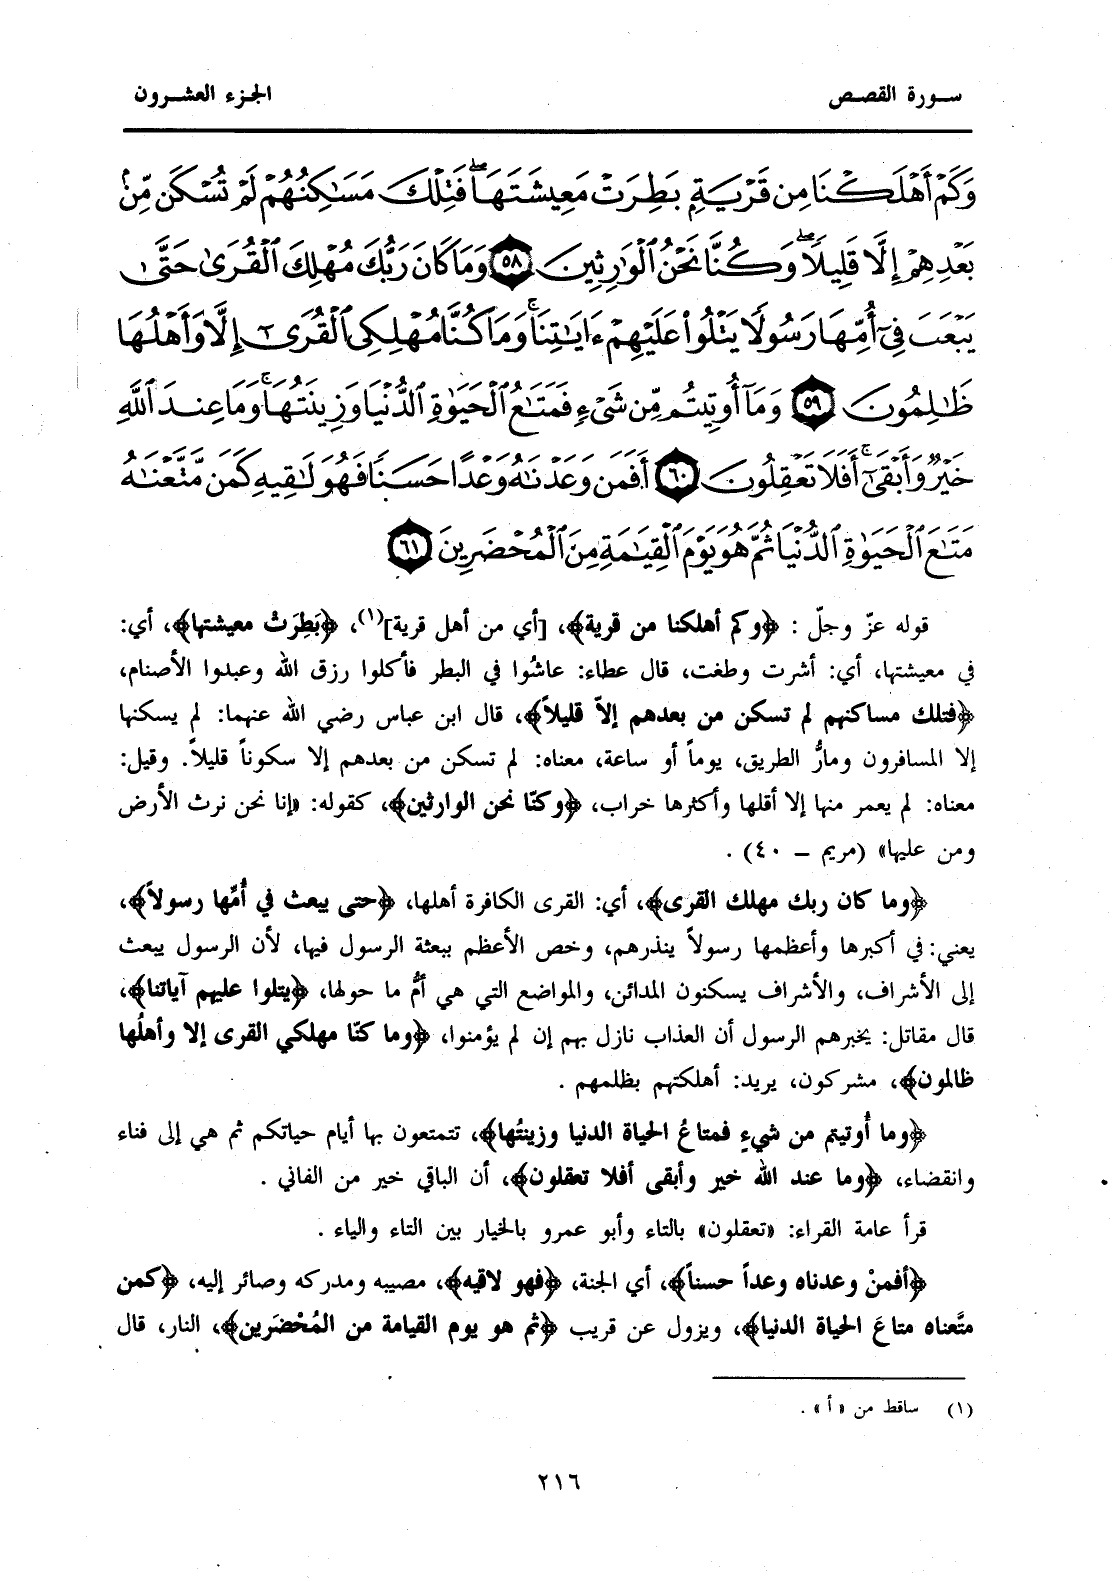 سورة القصص
الجزء العشرون
وَكَمْ أَهْلَكْنَا مِن قَرْيَةٍ بَطِرَتْ مَعِيشَتَهَا ۖ فَتِلْكَ مَسَٰكِنُهُمْ لَمْ تُسْكَن مِّنۢ
بَعْدِهِمْ إِلَّا قَلِيلًا ۖ وَكُنَّا نَحْنُ ٱلْوَٰرِثِينَ ٥٨ وَمَا كَانَ رَبُّكَ مُهْلِكَ ٱلْقُرَىٰ حَتَّىٰ
يَبْعَثَ فِىٓ أُمِّهَا رَسُولًا يَتْلُوا۟ عَلَيْهِمْ ءَايَٰتِنَا ۚ وَمَا كُنَّا مُهْلِكِى ٱلْقُرَىٰٓ إِلَّا وَأَهْلُهَا
ظَٰلِمُونَ ٥٩ وَمَآ أُوتِيتُم مِّن شَىْءٍ فَمَتَٰعُ ٱلْحَيَوٰةِ ٱلدُّنْيَا وَزِينَتُهَا ۚ وَمَا عِندَ ٱللَّهِ
خَيْرٌ وَأَبْقَىٰٓ ۚ أَفَلَا تَعْقِلُونَ ٦٠ أَفَمَن وَعَدْنَٰهُ وَعْدًا حَسَنًا فَهُوَ لَٰقِيهِ كَمَن مَّتَّعْنَٰهُ
مَتَٰعَ ٱلْحَيَوٰةِ ٱلدُّنْيَا ثُمَّ هُوَ يَوْمَ ٱلْقِيَٰمَةِ مِنَ ٱلْمُحْضَرِينَ ٦١
قوله عزّ وجلّ : ﴿وكم أهلكنا من قرية﴾، [أي من أهل قرية](١)، ﴿بَطِرَتْ معيشتها﴾، أي:
في معيشتها، أي: أشرت وطغت، قال عطاء: عاشُوا في البطر فأكلوا رزق الله وعبدوا الأصنام،
﴿فتلك مساكنهم لم تسكن من بعدهم إلاّ قليلاً﴾، قال ابن عباس رضي الله عنهما: لم يسكنها
إلا المسافرون ومارُّ الطريق، يوماً أو ساعة، معناه: لم تسكن من بعدهم إلا سكوناً قليلاً. وقيل:
معناه: لم يعمر منها إلا أقلها وأكثرها خراب، ﴿وكنّا نحن الوارثين﴾، كقوله: «إنا نحن نرث الأرض
ومن عليها» (مريم – ٤٠) .
﴿وما كان ربك مهلك القرى﴾، أي: القرى الكافرة أهلها، ﴿حتى يبعث في أُمِّها رسولاً﴾،
يعني: في أكبرها وأعظمها رسولاً ينذرهم، وخص الأعظم ببعثة الرسول فيها، لأن الرسول يبعث
إلى الأشراف، والأشراف يسكنون المدائن، والمواضع التي هي أمُّ ما حولها، ﴿يتلوا عليهم آياتنا﴾،
قال مقاتل: يخبرهم الرسول أن العذاب نازل بهم إن لم يؤمنوا، ﴿وما كنّا مهلكي القرى إلا وأهلُها
ظالمون﴾، مشركون، يريد: أهلكتهم بظلمهم .
﴿وما أُوتيتم من شيءٍ فمتاعُ الحياة الدنيا وزينتُها﴾، تتمتعون بها أيام حياتكم ثم هي إلى فناء
وانقضاء، ﴿وما عند الله خير وأبقى أفلا تعقلون﴾، أن الباقي خير من الفاني .
قرأ عامة القراء: «تعقلون» بالتاء وأبو عمرو بالخيار بين التاء والياء .
﴿أفمنْ وعدناه وعداً حسناً﴾، أي الجنة، ﴿فهو لاقيه﴾، مصيبه ومدركه وصائر إليه، ﴿كمن
متَّعناه متاعَ الحياة الدنيا﴾، ويزول عن قريب ﴿ثم هو يوم القيامة من المُحْضَرين﴾، النار، قال
(١) ساقط من «أ» .
٢١٦